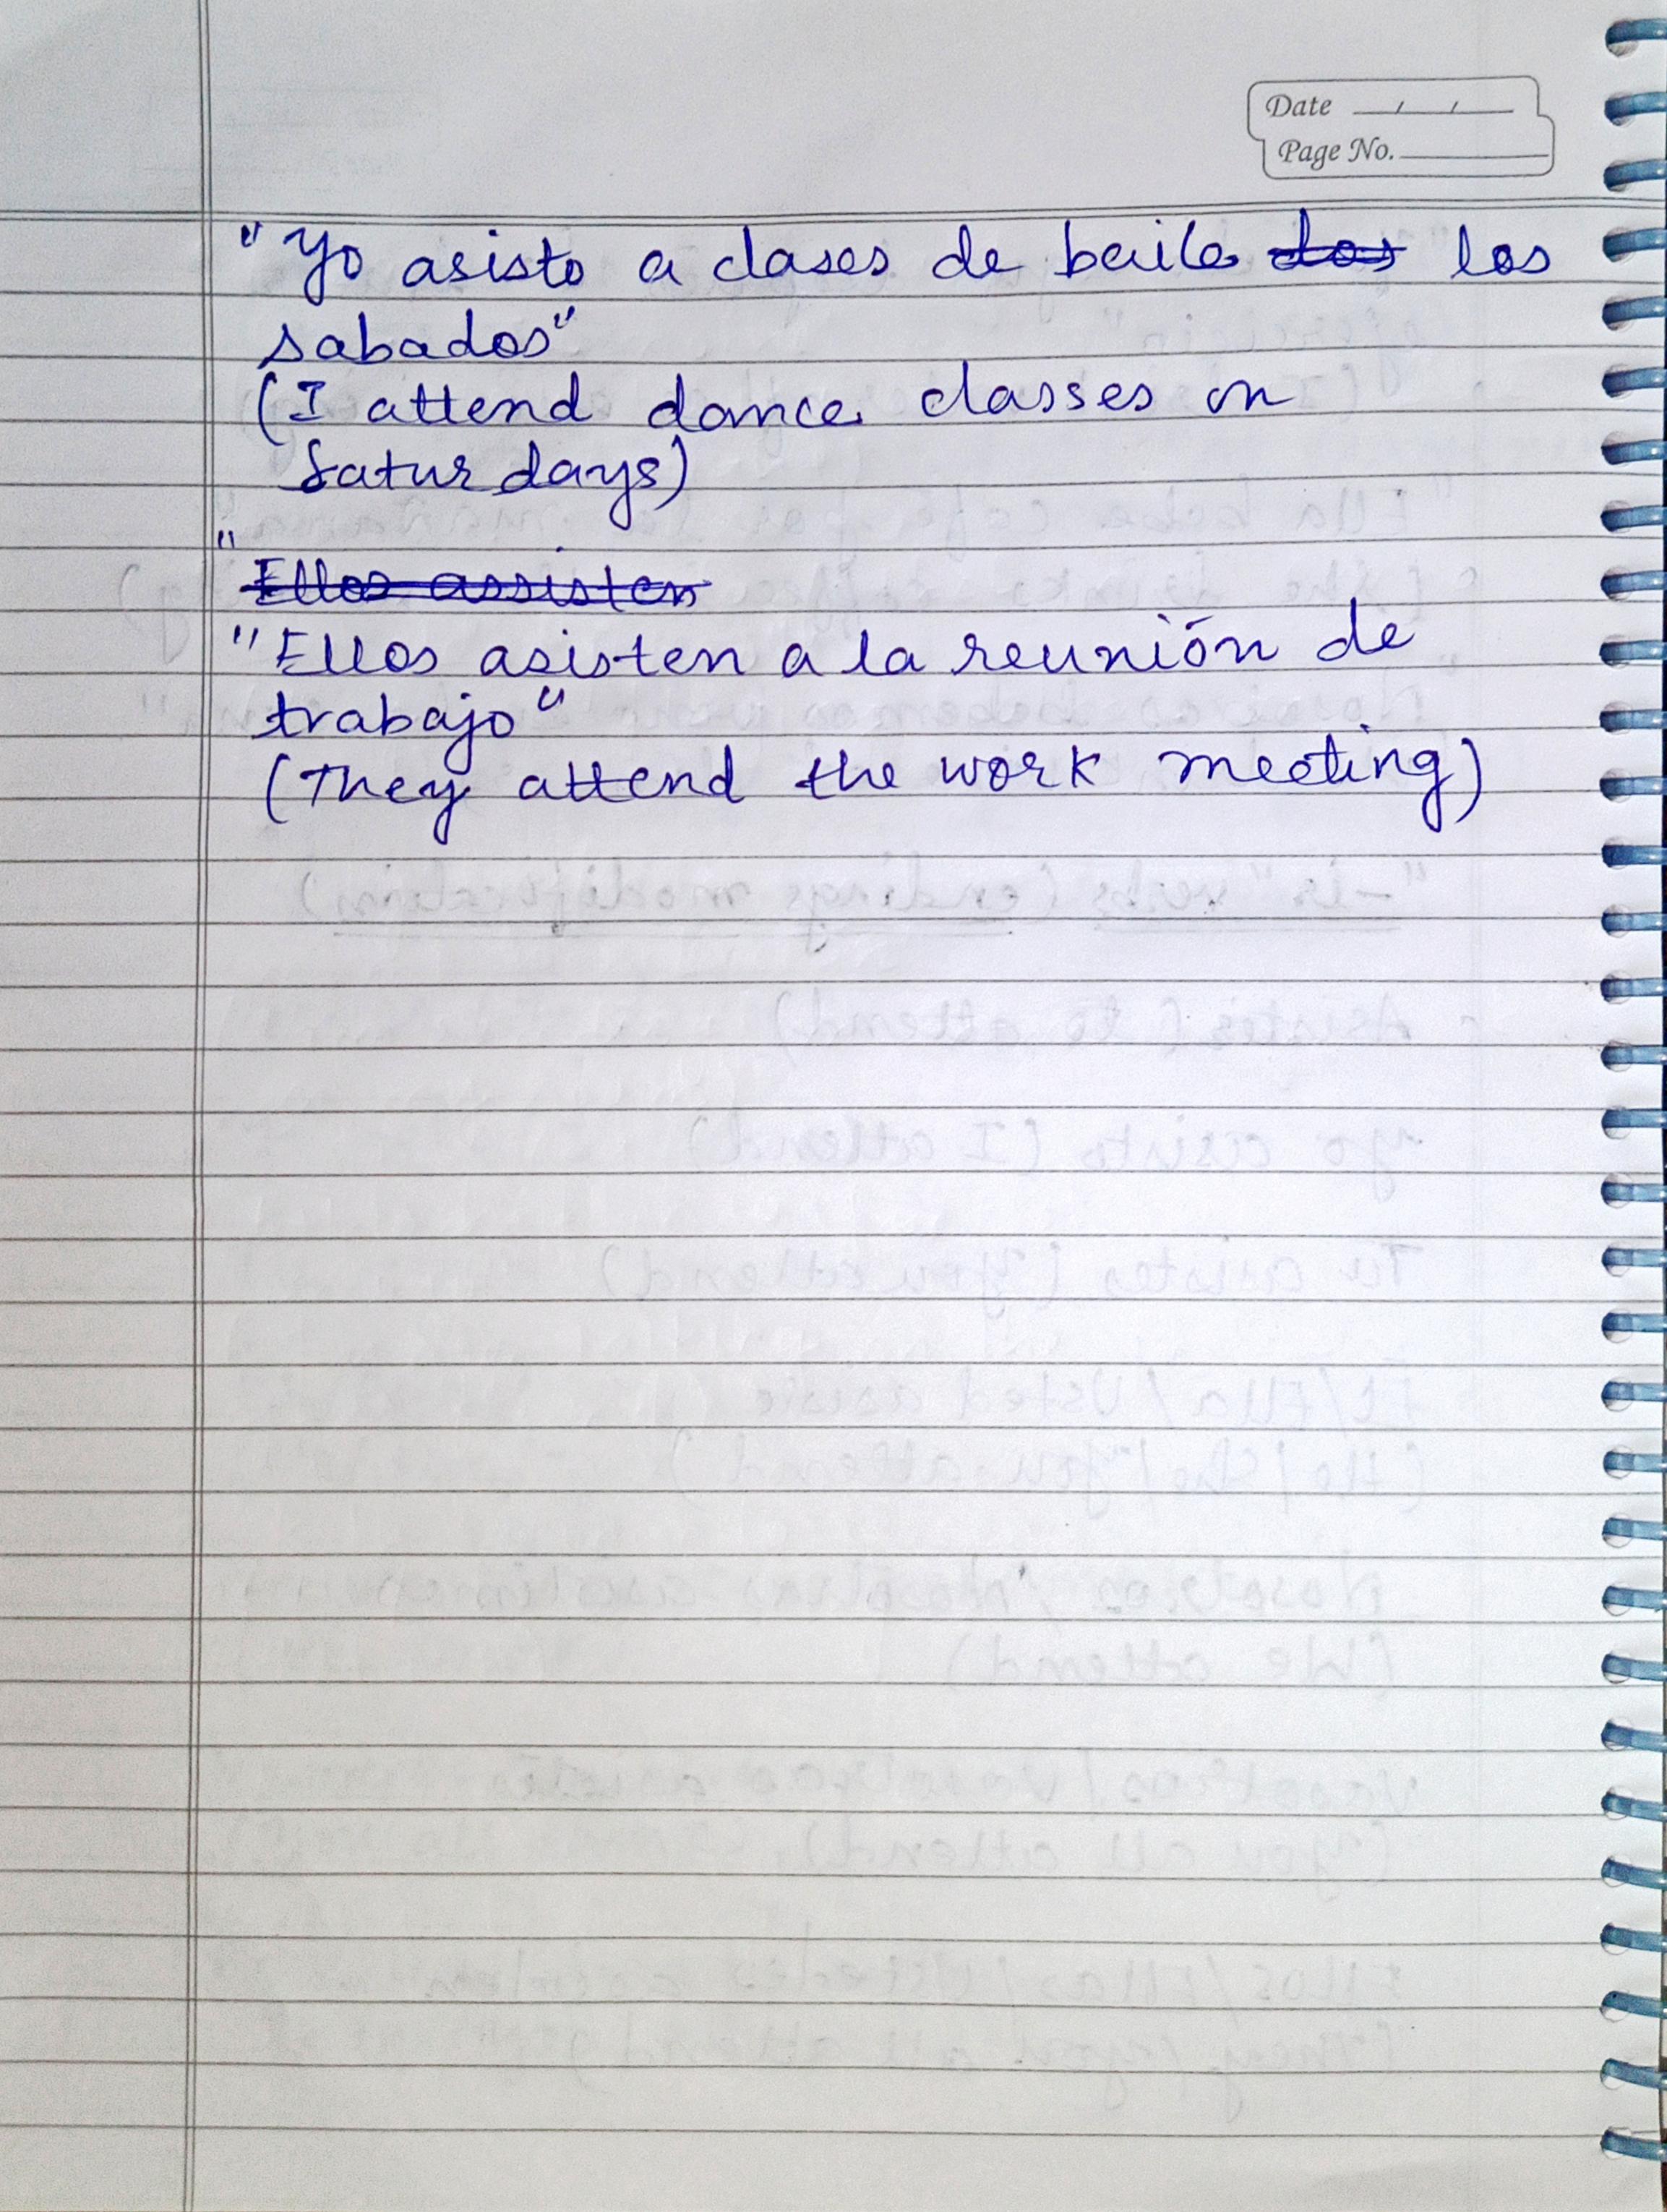 Date __/__/__
Page No. ______
"Yo asisto a clases de baile ~~dos~~ los
sabados"
(I attend dance classes on
Saturdays)
"
~~Ellos assisten~~
"Ellos asisten a la reunión de
trabajo"
(They attend the work meeting)